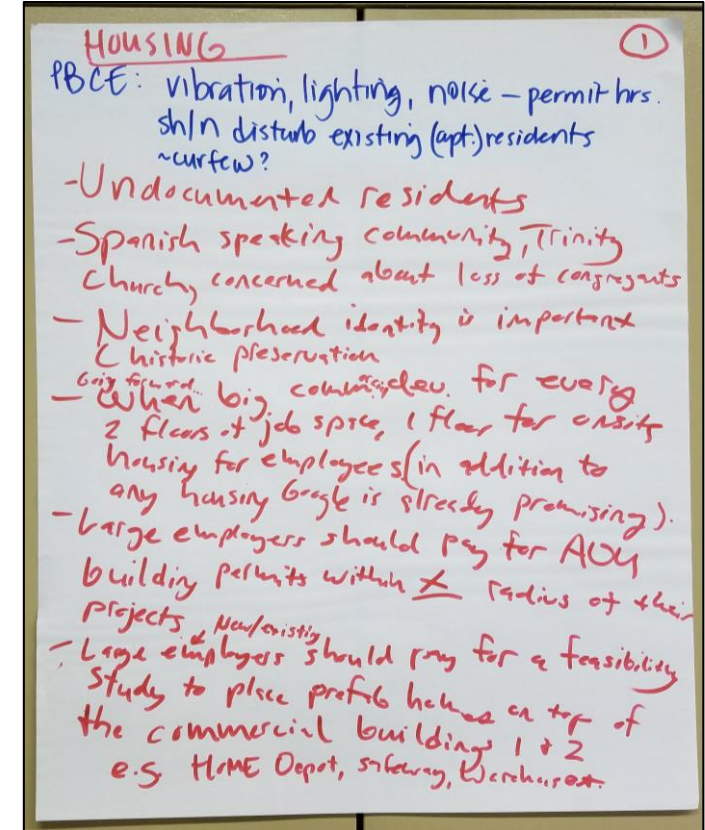 HOUSING
1
PBCE: vibration, lighting, noise – permit hrs.
sh/n disturb existing (apt.) residents
~curfew?
-Undocumented residents
-Spanish speaking community, Trinity
Church, concerned about loss of congregants
- Neighborhood identity is important
( historic preservation
Going forward...
- When big comm. dev. for every
2 floors of job space, 1 floor for onsite
housing for employees (in addition to
any housing Google is already promising).
- Large employers should pay for ADU
building permits within X radius of their
projects
New/existing
- Large employers should pay for a feasibility
study to place prefab homes on top of
the commercial buildings 1 + 2
e.g. HOME Depot, safeway, Warehouse